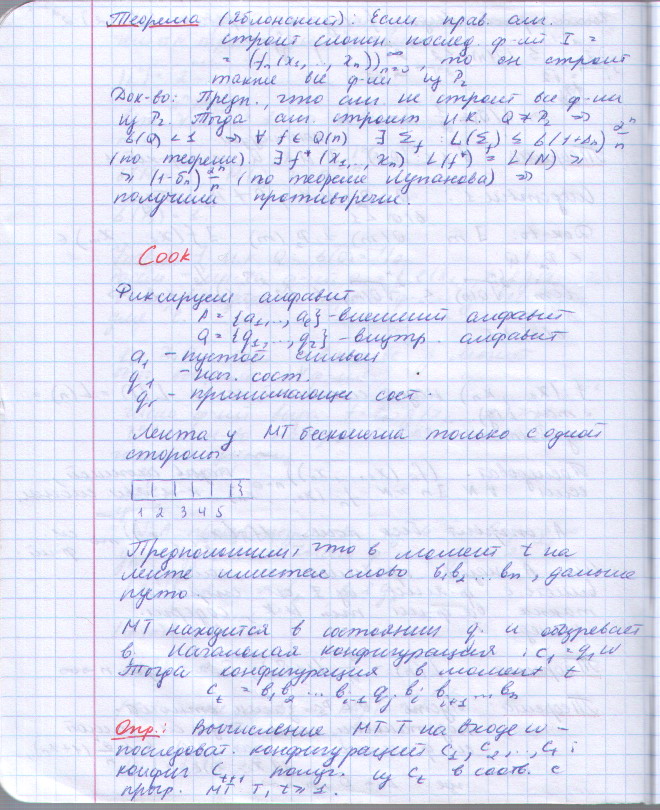 Теорема (Яблонский): Если прав. алг.
строит сложн. послед. ф-ий I =
= (fₙ(x₁,..., xₙ))ₙ₌₀^∞, то он строит
также все ф-ии из P₂
Док-во: Предп., что алг. не строит все ф-ии
из P₂. Тогда алг. строит и.к. Q ≠ P₂ ⇒
σ(Q) < 1 ⇒ ∀ f ∈ Q(n) ∃ Σ_f L(Σ_f) ≤ σ(1+Δₙ) 2ⁿ/n
(по теореме). ∃ f*(x₁,.., xₙ) L(f*) = L(N) ≥
≥ (1-δₙ) 2ⁿ/n (по теореме Лупанова) ⇒
получили противоречие.
Cook
Фиксируем алфавит
A = {a₁,.., a_e} - внешний алфавит
Q = {q₁,.., q_r} - внутр. алфавит
a₁ - пустой символ
q₁ - нач. сост.
q_r - принимающее сост.
Лента у МТ бесконечна только с одной
стороны
1 2 3 4 5
Предположим, что в момент t на
ленте имеется слово b₁b₂...bₙ, дальше
пусто.
МТ находится в состоянии qⱼ и обозревает
bᵢ Начальная конфигурация: C₁ = q₁w
Тогда конфигурация в момент t
C_t = b₁b₂ ... bᵢ₋₁ qⱼ bᵢ bᵢ₊₁ ... bₙ
Опр.: Вычисление МТ T на входе w -
последоват. конфигураций C₁, C₂,..,C_t :
конфиг C_t+₁ получ. из C_t в соотв. с
прогр. МТ T, t ≥ 1.